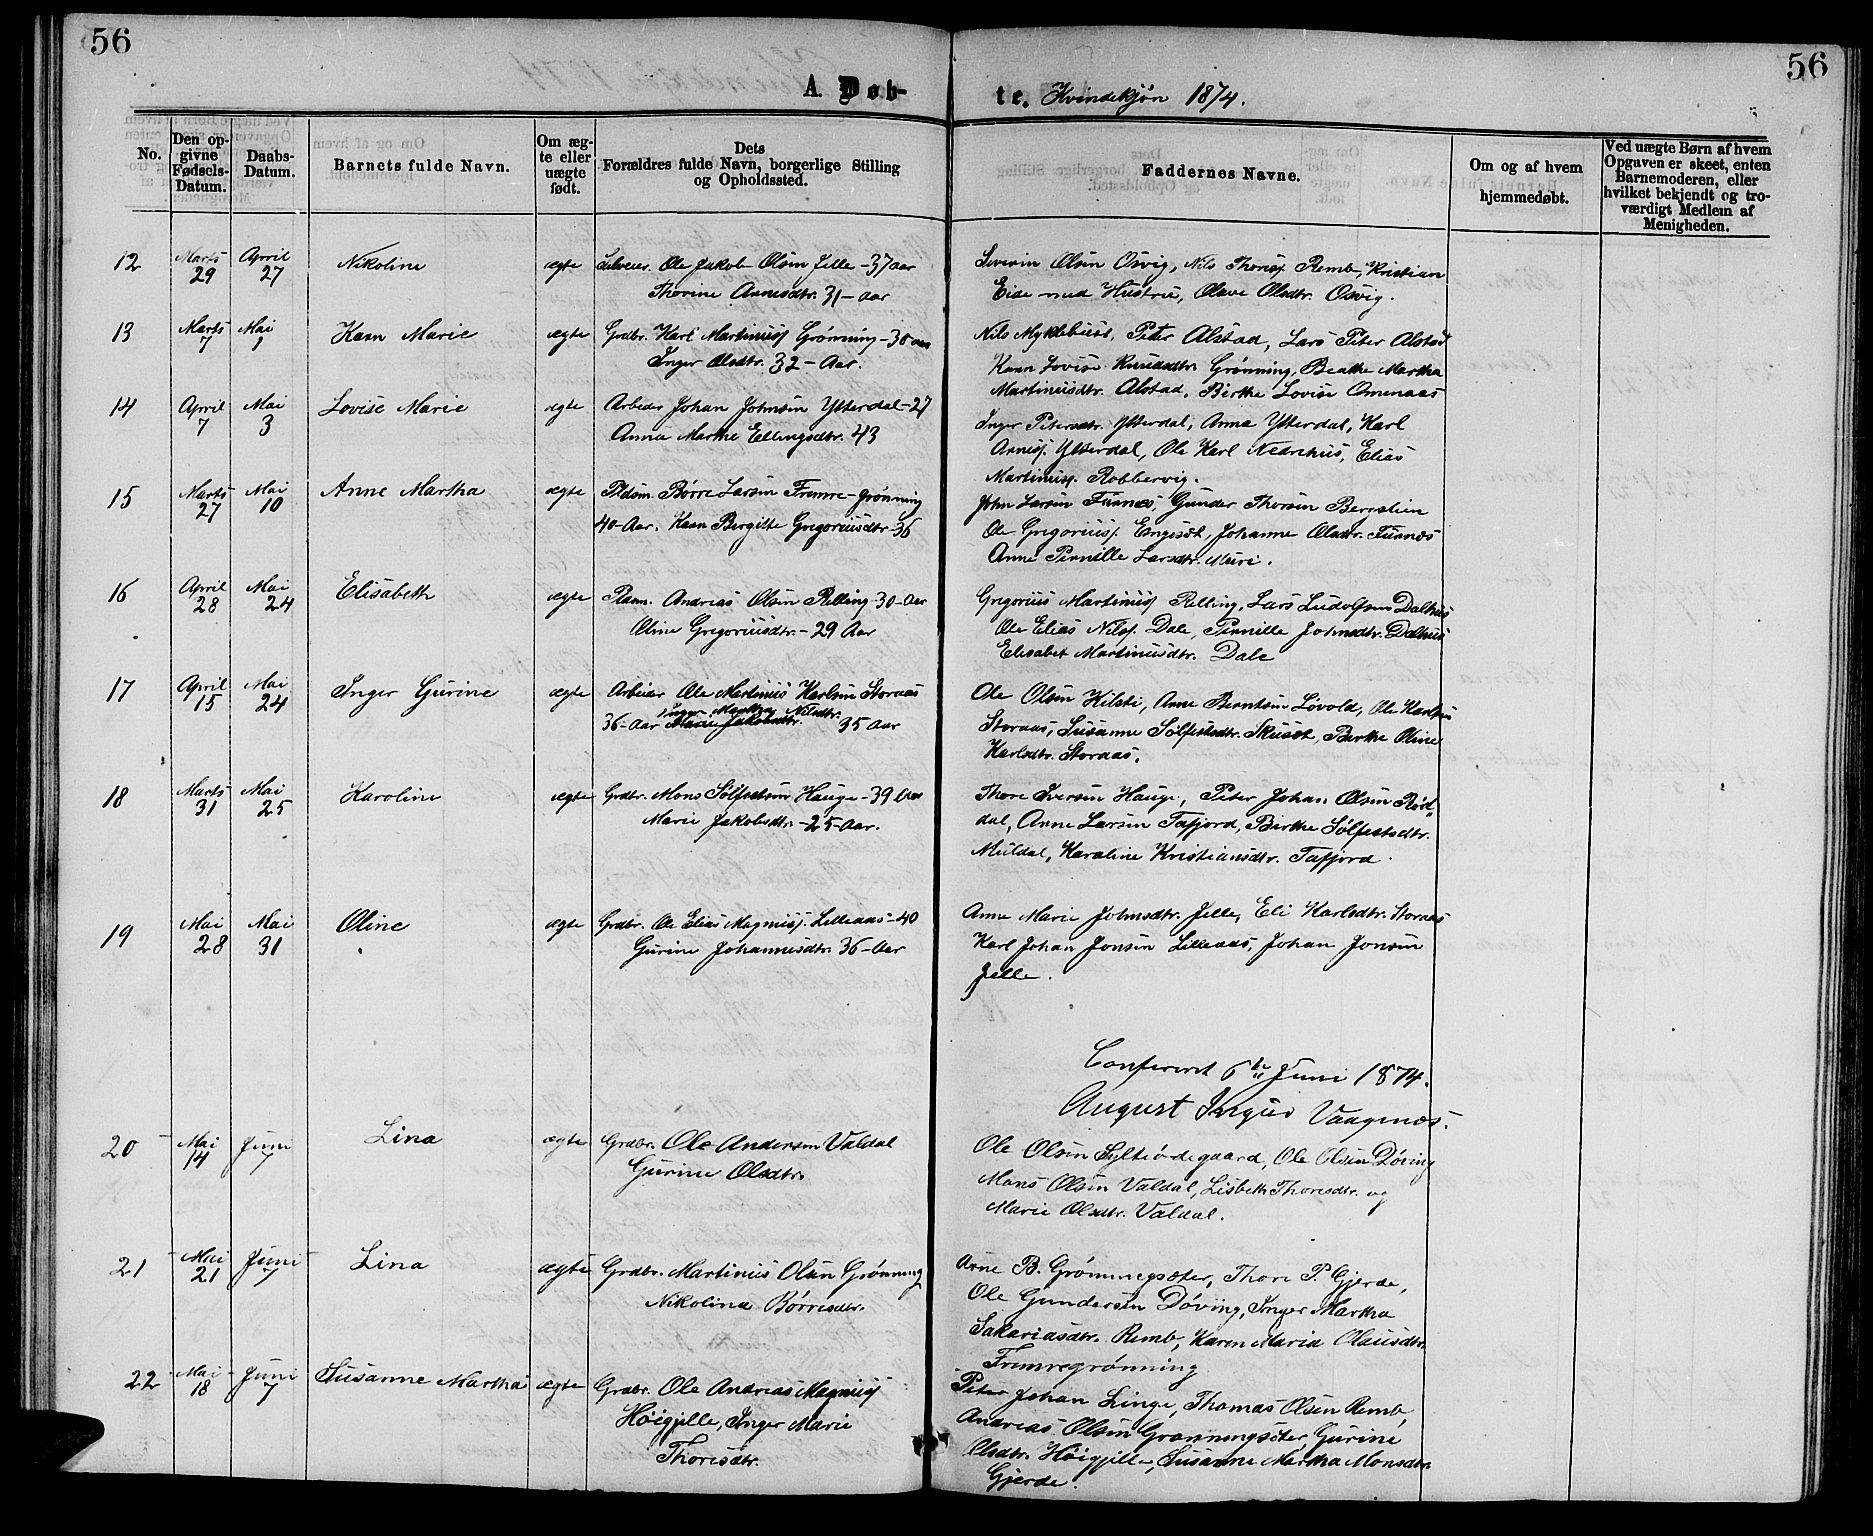 56
56
A. Døb-
te. Kvindekjøn 1874.
No.
Den op-
givne
Fødsels-
Datum.
Daabs-
Datum.
Barnets fulde Navn.
Om æg-
te eller
uægte
født.
Dets
Forældres fulde Navn, borgerlige Stilling
og Opholdssted.
Faddernes Navne.
Om og af hvem
hjemmedøbt.
Ved uægte Børn af hvem
Opgaven er skeet, enten
Barnemoderen, eller
hvilket bekjendt og tro-
værdigt Medlem af
Menigheden.
12 Marts 29 April 27 Nikoline ægte Selveier. Ole Jakob Olsen Jelle - 37 aar
Thorine Arnesdtr. 31 - aar
Severin Olsen Osvig, Nils Thoresj. Remb, Kristian
Eide med Hustru, Olave Olsdtr. Osvig.
13 Marts 7 Mai 1 Karn Marie ægte Grdbr. Karl Martinusj Grønning - 38 aar
Inger Olsdtr. 32 - Aar.
Nils Myklebust, Peter Alstad, Lars Peter Alstad
Karn Lovise Knudsdtr. Grønning, Beathe Martha
Martinusdtr. Alstad, Birthe Lovise Omenaas
14 April 7 Mai 3 Lovise Marie ægte Arbeider Johan Johnsen Ytterdal - 27
Anna Marthe Ellingsdtr. 43
Inger Petersdtr. Ytterdal, Anna Ytterdal, Karl
Arnesj. Ytterdal, Ole Karl Nedrehus, Elias
Martinusj. Robbervig.
15 Marts 27 Mai 10 Anne Martha ægte Pldsm. Børre Larsen Fremre-grønning
40 - Aar. Karn Bergitte Gregoriusdtr 36
John Larsen Furnæs, Gunder Thorsen Berrstein
Ole Gregoriusj. Engeset, Johanne Olsdtr. Furnæs
Anne Pernille Larsdtr. Muri.
16 April 28 Mai 24 Elisabeth ægte Pldsm. Andreas Olsen Relling - 30 - Aar
Oline Gregoriusdtr. - 29 Aar
Gregorius Martinusj Relling, Lars Ludolfsen Dalhus
Ole Elias Nilsj. Dale, Pernille Johnsdtr. Dalhus
Elisabet Martinusdtr. Dale
17 April 15 Mai 24 Inger Gurine ægte Arbeider Ole Martinus Karlsen Storaas
Inger Martha Nilsdtr.
36 - Aar Marie Jakobsdtr. 35 Aar
Ole Olsen Hilsti, Arne Berntsen Løvold, Ole Karlsen
Storaas, Susanne Sølfestsdtr. Skuset, Birthe Oline
Karlsdtr. Storaas.
18 Marts 31 Mai 25 Karoline ægte Grdbr. Mons Sølfestsen Hauge - 39 Aar
Marie Jakobsdtr. - 25 - Aar.
Thore Iversen Hauge, Peter Johan Olsen Rød
dal, Arne Larsen Tafjord, Birthe Sølfestsdtr.
Muldal, Karoline Kristiansdtr. Tafjord.
19 Mai 28 Mai 31 Oline ægte Grdbr. Ole Elias Magnusj. Lilleaas - 40
Gurine Johannesdtr. 36 - Aar
Anne Marie Johnsdtr. Jelle, Eli Karlsdtr. Storaas
Karl Johan Jonsen Lilleaas, Johan Jonsen
Jelle.
Confereret 6te Juni 1874.
August Vaagenæs.
20 Mai 14 Juni 7 Lina ægte Grdbr. Ole Andersen Valdal
Gurine Olsdtr.
Ole Olsen Sylteødegaard, Ole Olsen Døving
Mons Olsen Valdal, Lisbeth Thoresdtr. og
Marie Olsdtr. Valdal.
21 Mai 21 Juni 7 Lina ægte Grdbr. Martinus Olsen Grønning
Nikolina Børresdtr.
Arne B. Grønningsæter, Thore P. Gjerde,
Ole Gundersen Døving, Inger Martha
Sakariasdtr. Remb, Karen Maria Olausdtr.
Fremregrønning
22 Mai 18 Juni 7 Susanne Martha ægte Grdbr. Ole Andreas Magnusj
Høigjelle, Inger Marie
Thoresdtr.
Peter Johan Linge, Thomas Olsen Remb
Andreas Olsen Grønningsæter Gurine
Olsdtr. Høigjelle, Susanne Martha Monsdtr.
Gjerde.